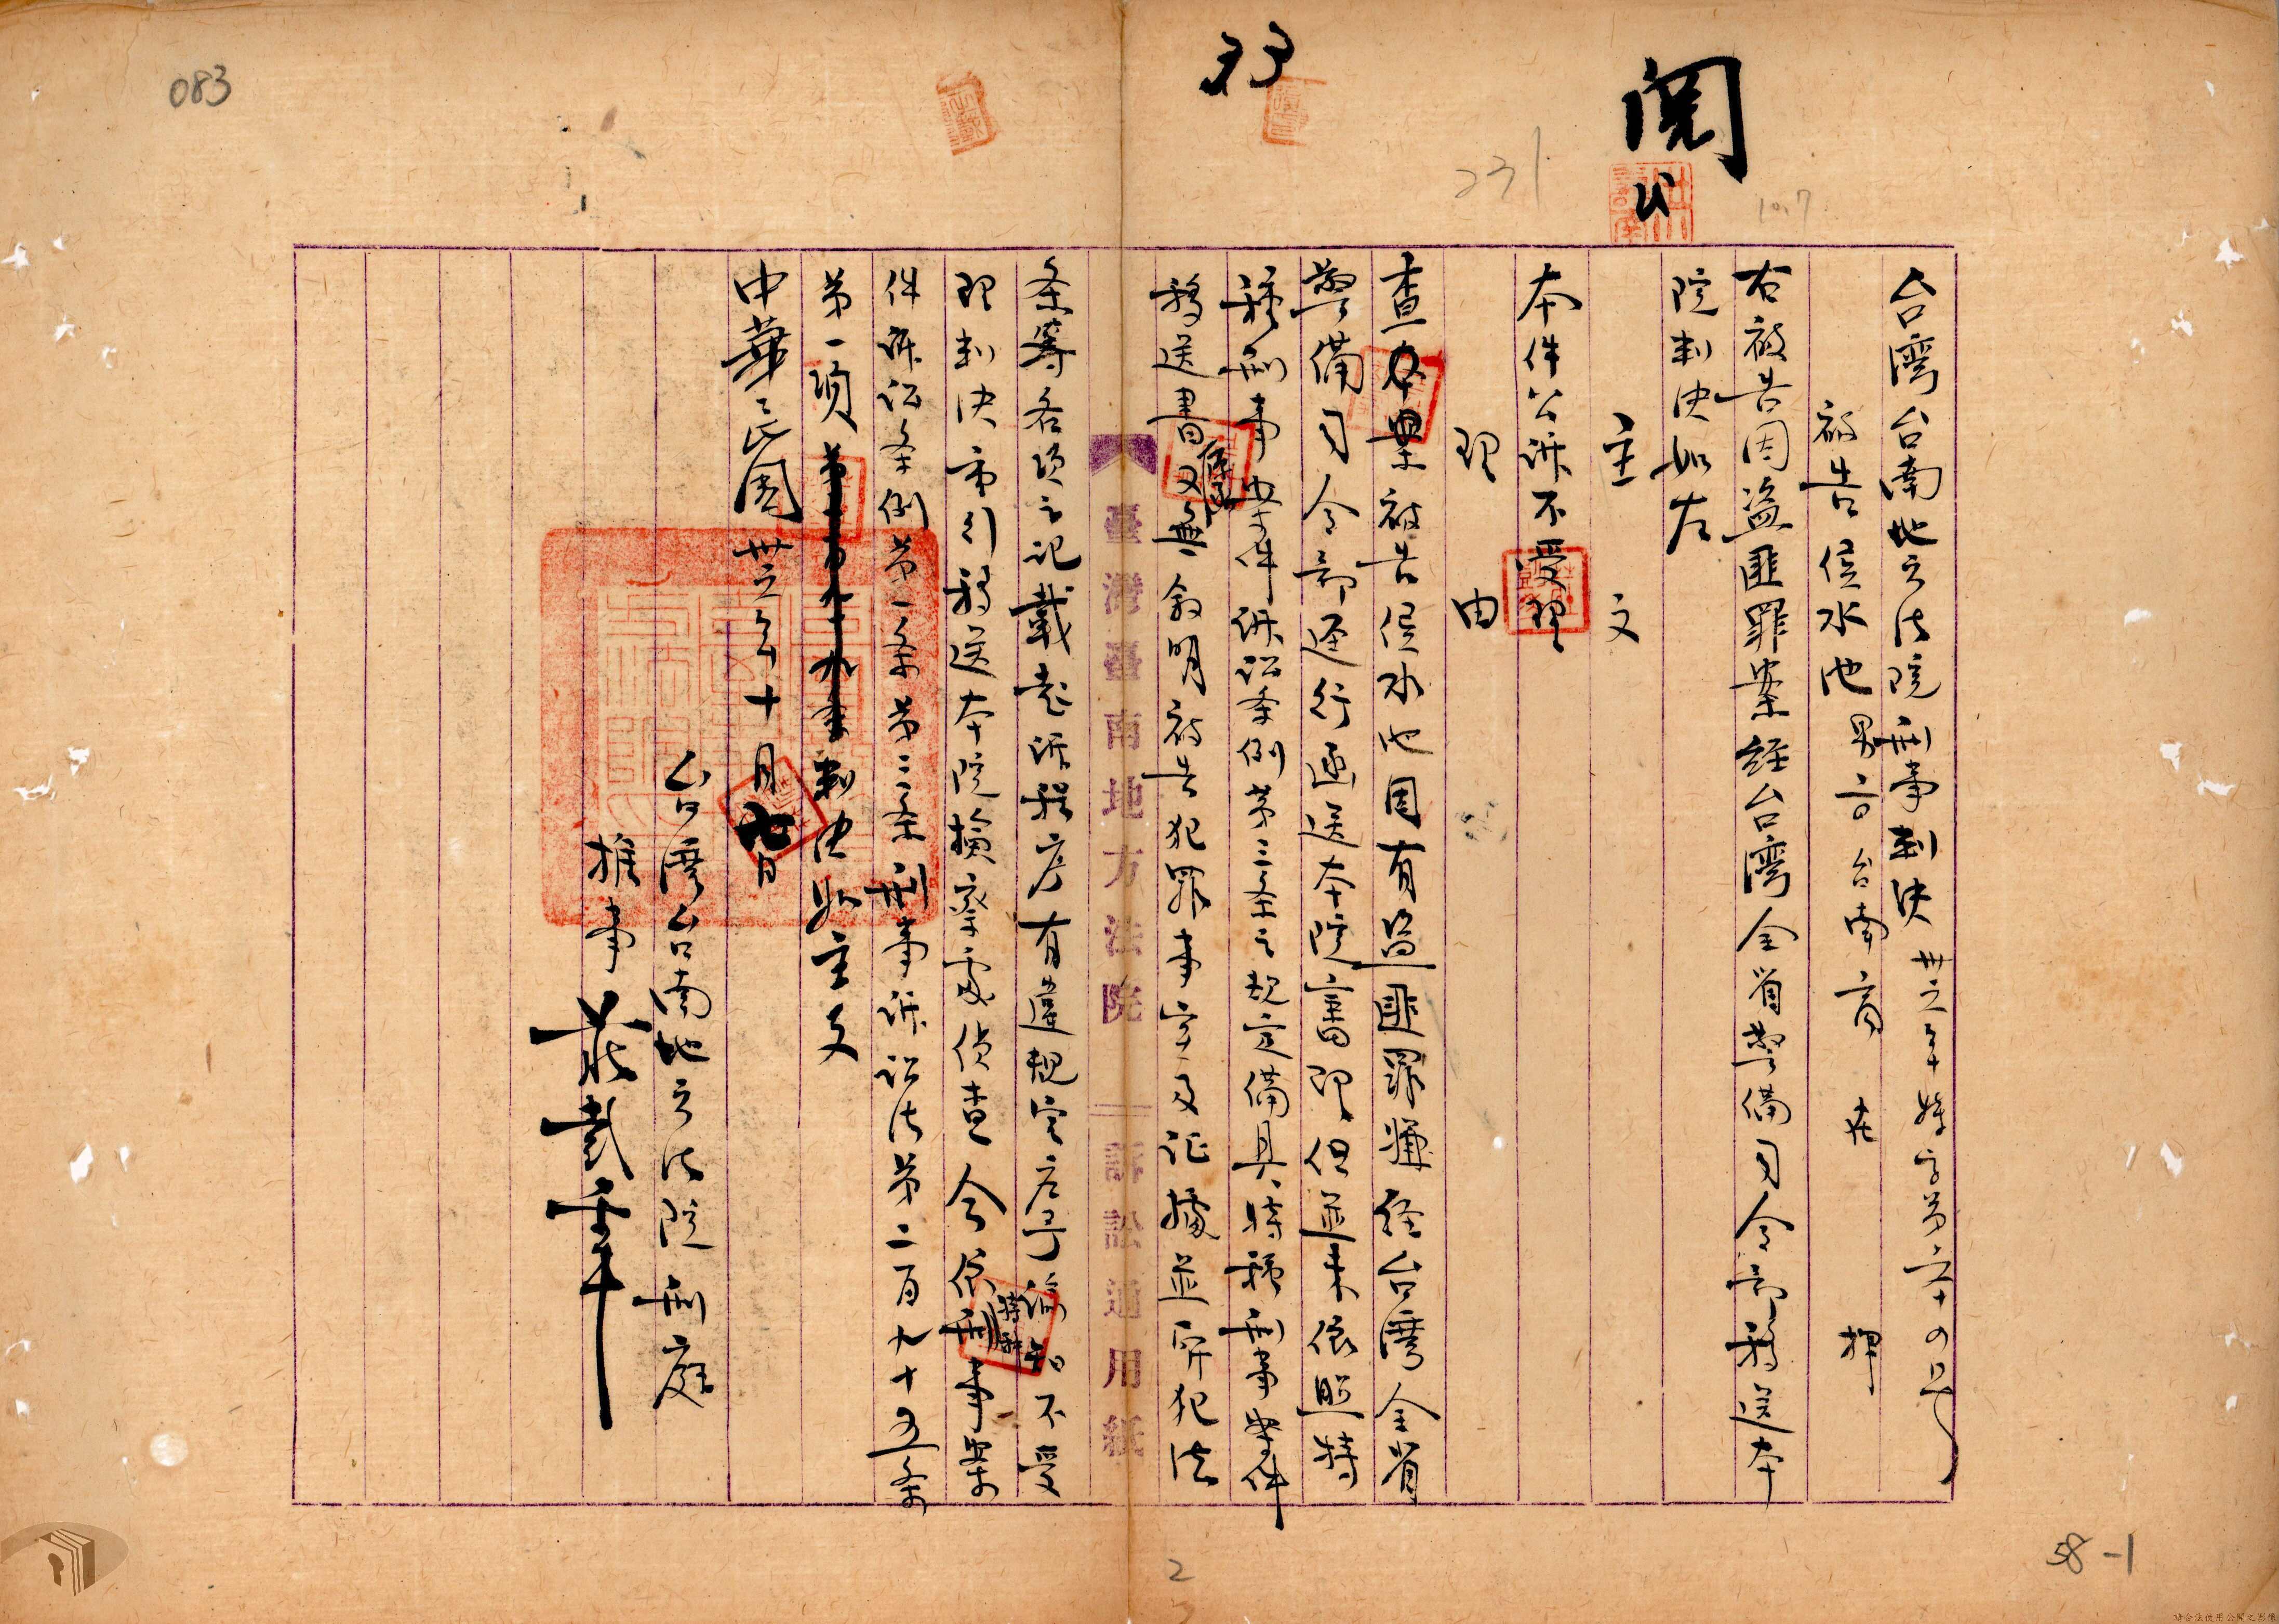 083
33
閱
231
10.7
台湾台南地方法院刑事判决 卅五年特字第六十四号
被告侯水池 男 台南市 在押
右被告因盜匪罪案經台湾全省警備司令部移送本
院判决如左
主文
本件公訴不受理
理由
查本案被告侯水池因有盜匪罪嫌経台湾全省
警備司令部逕行逓送本院審 但並未依照特
種刑事案件訴訟条例第三条之規定備具特種刑事案件
移送書又無敘明被告犯罪事实及证據並所犯法
臺灣臺南地方法院 訴訟適用紙
条等各項之記載起訴程序有違規定应予諭知不受
理判决 移送本院檢察處偵查 今依特種刑事案
件訴訟条例第一条第二条刑事訴訟法第二百九十五条
第一項 判决如主文
中華民國卅五年十月七日
台湾台南地方法院刑庭
推事
2
58-1
請合法使用公開之影像